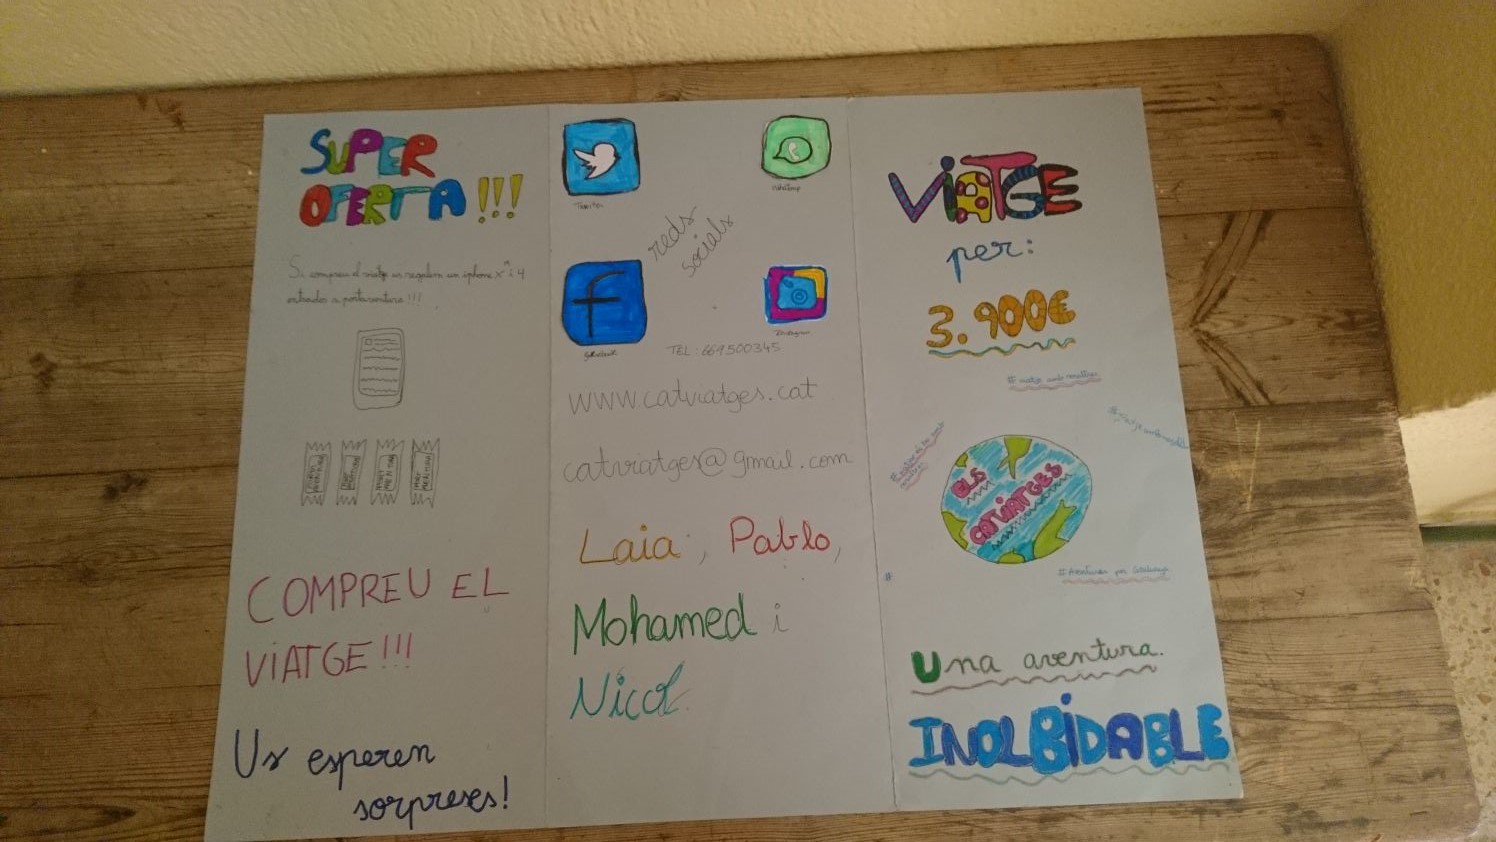 SUPER
OFERTA!!!
Si compreu el viatge us regalem un iphone X i 4
entrades a portaventura!!!
COMPREU EL
VIATGE!!!
Us esperen
sorpreses!
WhatsApp
reds
socials
Instagram
TEL: 669500345
www.catviatges.cat
catviatges@gmail.com
Laia, Pablo,
Mohamed i
Nicol.
VIATGE
per:
3.900€
ELS
CATVIATGES
#Aventures per Catalunya
#
Una aventura.
INOLBIDABLE